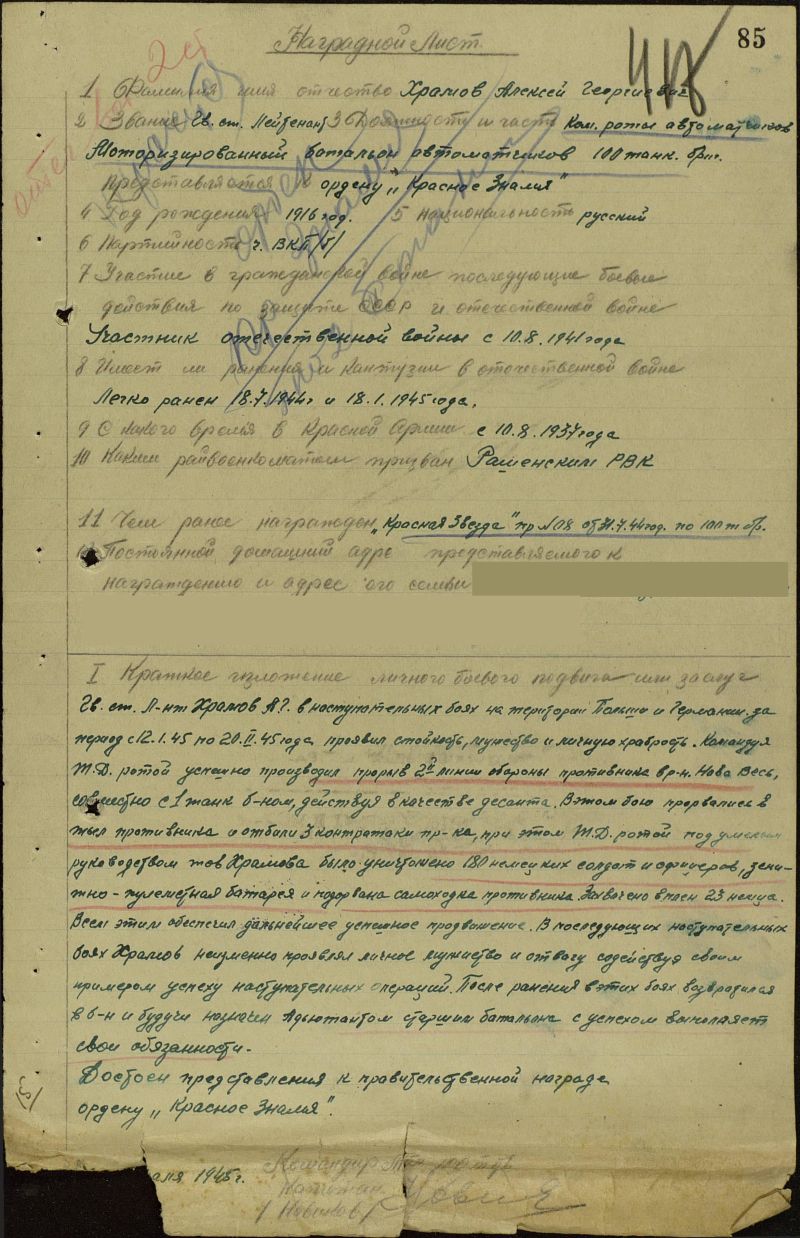 85
Наградной Лист
1 Фамилия имя отчество Храмов Алексей Георгиевич
2 Звание Гв. ст. Лейтенант 3 Должность и часть Ком. роты автоматчиков
Моторизированный батальон автоматчиков 100 танк. бриг.
Представляется к ордену „Красное Знамя"
4 Год рождения 1916 год. 5 Национальность русский
6 Партийность ч. ВКП/б/
7 Участие в гражданской войне последующие боевые
действия по защите СССР и отечественной войне
Участник отечественной войны с 10.8.1941 года
8 Имеет ли ранения и контузии в отечественной войне
Легко ранен 18.7.1944 г и 18.1.1945 года.
9 С какого время в Красной Армии с 10.8.1937 года
10 Каким райвоенкоматом призван Рашенским РВК
11 Чем ранее награжден „Красная Звезда" пр № 08 от 31.7.44 год. по 100 т бр.
12 Постоянной домашний адре представляемого к
награждению и адрес его семьи
I Краткое изложение личного боевого подвига или заслуг
Гв. ст. Л-нт Храмов А.Г. в наступательных боях на територии Польши и Германии за
период с 12.1.45 по 20.II.45 года проявил стойкость, мужество и личную храбрость. Командуя
Т.Д. ротой успешно производил прорыв 2й линии обороны противника в р-н. Нова Весь,
совместно с 1 танк б-ном, действуя в качестве десанта. В этом бою прорвались в
тыл противника и отбили 3 контратаки пр-ка, при этом Т.Д. ротой под умелым
руководством тов Храмова было уничтожено 180 немецких солдат и офицеров, зени-
тно-пулеметная батарея и подорвана самоходка противника. Захвачено в плен 23 немца.
Всем этим обеспечил дальнейшее успешное продвижение. В последующих наступательных
боях Храмов неизменно проявлял личное мужество и отвагу содействуя своим
примером успеху наступательных операций. После ранения в этих боях возвратился
в б-н и будучи назначен Адьютантом старшим батальона с успехом выполняет
свои обязанности.
Достоен представления к правительственной награде
ордену „Красное Знамя".
1945 г.
Командир
Капитан
/Новиков/